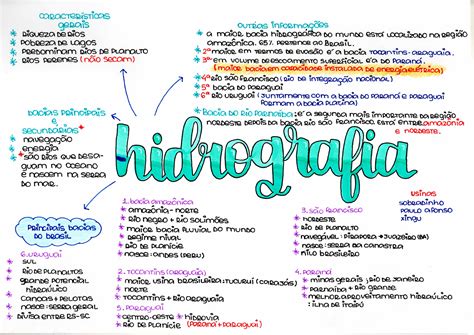 CARACTERÍSTICAS
GERAIS
RIQUEZA DE RIOS
POBREZA DE LAGOS
PREDOMINAM RIOS DE PLANALTO
RIOS PERENES (NÃO SECAM)
OUTRAS INFORMAÇÕES
A MAIOR BACIA HIDROGRÁFICA DO MUNDO ESTÁ LOCALIZADO NA REGIÃO
AMAZÔNICA. 65% PERTENCE AO BRASIL.
2º EM TERMOS DE EXTENSÃO E VAZÃO É A TOCANTINS-ARAGUAIA.
3º EM VOLUME DE ESCOAMENTO SUPERFICIAL É A DO PARANÁ.
(MAIOR BACIA EM CAPACIDADE INSTALADA DE ENERGIA ELÉTRICA)
4º RIO SÃO FRANCISCO (RIO DE INTEGRAÇÃO NACIONAL)
5º BACIA DO PARAGUAI
6º RIO URUGUAI (JUNTAMENTE COM A BACIA DO PARANÁ E PARAGUAI
FORMAM A BACIA PLATINA)
BACIA DO RIO PARNAÍBA: É A SEGUNDA MAIS IMPORTANTE DA REGIÃO
NORDESTE DEPOIS DA BACIA RIO SÃO FRANCISCO. ESTÁ ENTRE AMAZÔNIA
E NORDESTE.
BACIAS PRINCIPAIS
E
SECUNDÁRIAS
NAVEGAÇÃO
ENERGIA
SÃO RIOS QUE DESA-
GUAM NO OCEANO
E NASCEM NA SERRA
DO MAR.
hidrografia
PRINCIPAIS BACIAS
DO BRASIL
1. BACIA AMAZÔNICA
AMAZÔNIA - NORTE
RIO NEGRO + RIO SOLIMÕES
MAIOR BACIA FLUVIAL DO MUNDO
REGIME NIVAL
RIO DE PLANÍCIE
NASCE: ANDES (PERU)
2. TOCANTINS (ARAGUAIA)
MAIOR USINA BRASILEIRA: TUCURUÍ (GAIOLAS)
NORTE
TOCANTINS - RIO ARAGUAIA
3. SÃO FRANCISCO
NORDESTE
RIO DE PLANALTO
NAVEGÁVEL: PIRAPORA → JUAZEIRO (BA)
NASCE: MG
SERRA DA CANASTRA
USINAS
SOBRADINHO
PAULO AFONSO
XINGU
4. PARANÁ
MINAS GERAIS, RIO DE JANEIRO
PARNAÍBA - RIO GRANDE
MELHOR APROVEITAMENTO HIDRÁULICO
(ITAIPU)
5. PARAGUAI
CENTRO-OESTE → HIDROVIA
RIO DE PLANÍCIE (PARANÁ + PARAGUAI)
6. URUGUAI
SUL
RIO DE PLANALTOS
GRANDE POTENCIAL
HIDRÁULICO
CANOAS + PELOTAS
NASCE: SERRA GERAL
DIVISA ENTRE RS-SC